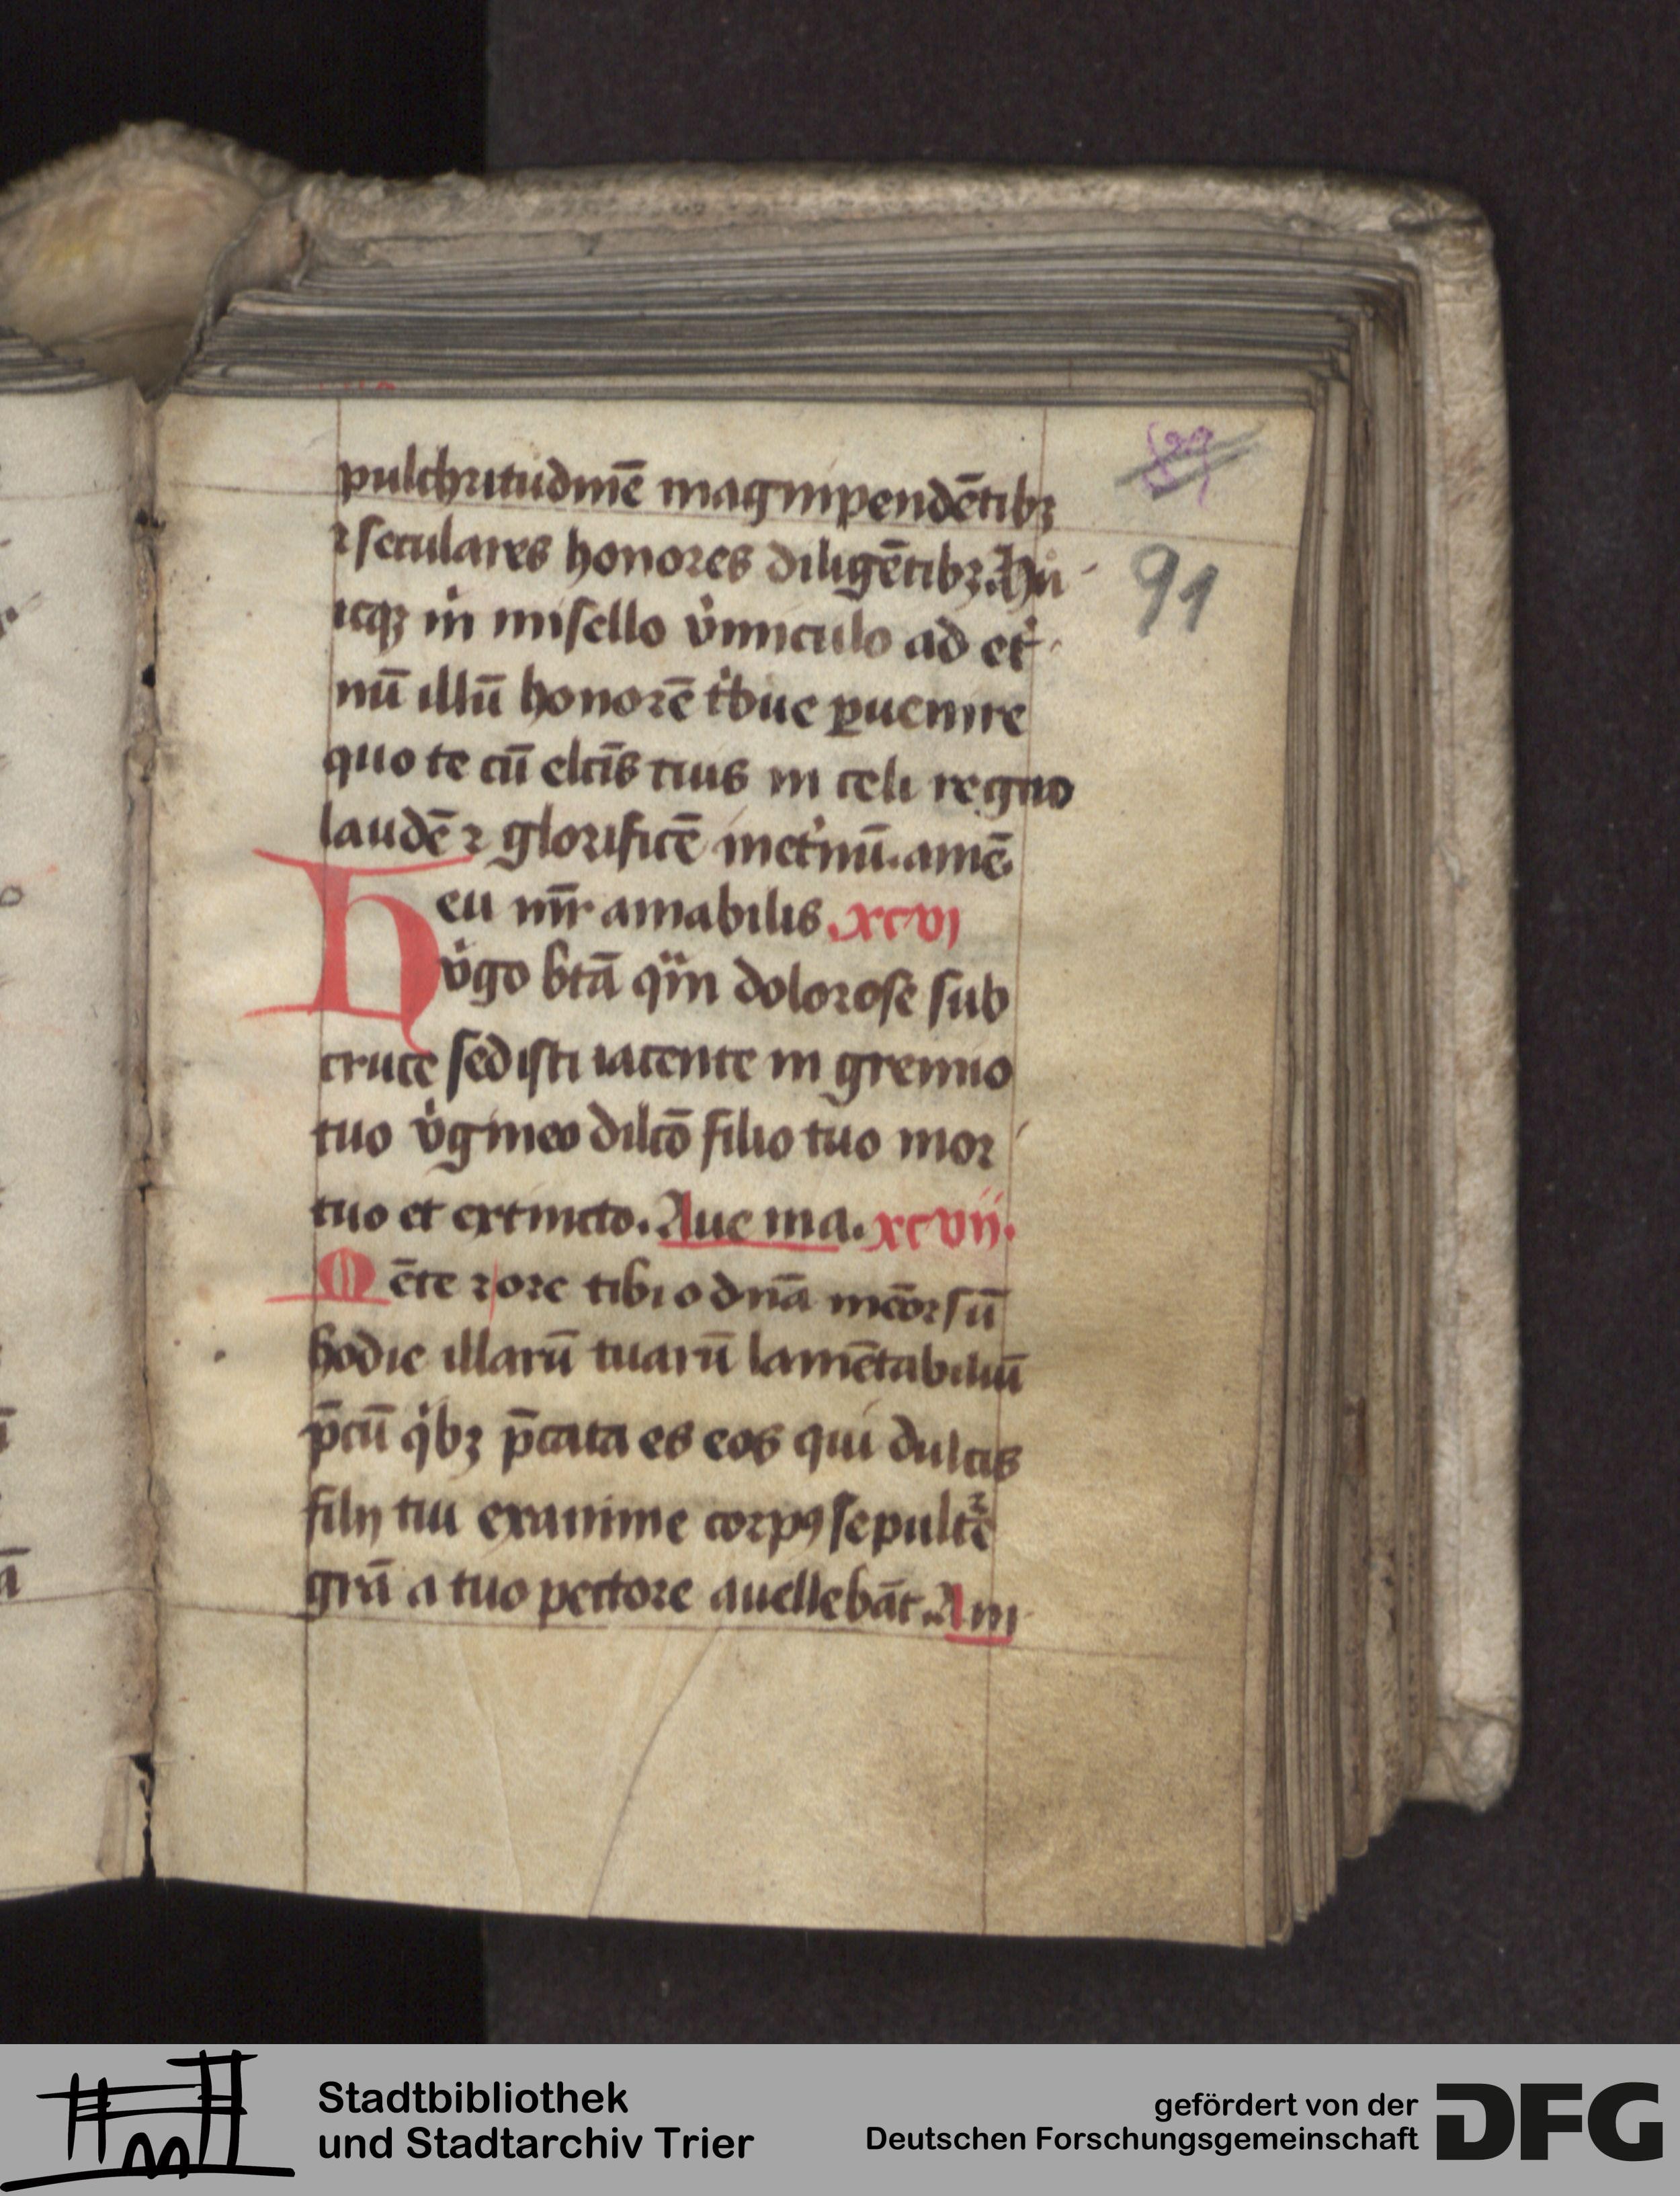 pulchritudinē magnipendētibꝫ
⁊ seculares honores diligētibꝫ. Hu
icqꝫ m̓ misello v̓miculo ad et̓
nū illū honorē t̓bue ꝑuenire
quo te cū elcīs tuis in celi regno
laudē ⁊ glorificē inet̓nū. amē
Heu mr̄ amabilis. xcvj
v̓go btā qn̄ dolorose sub
cruce sedisti iacente in gremio
tuo v̓gineo dilcō filio tuo mor
tuo et extincto. Aue ma. xcvij.
Mēte ⁊ ore tibi o dnā mēor sū
hodie illarū tuarū lamētabiliū
p̄cū q̓bꝫ p̄cata es eos qui dulcis
filij tui exanime corpꝯ sepulte
grā a tuo pectore auellebāt. Am
91
Stadtbibliothek
und Stadtarchiv Trier
gefördert von der
Deutschen Forschungsgemeinschaft
DFG